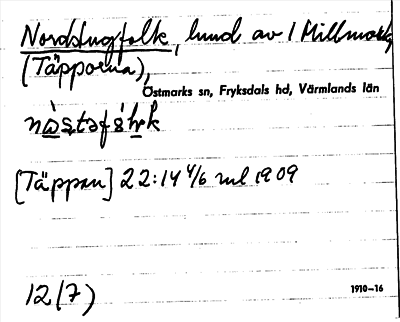 Nordstugfolk, lund av 1 Millmark
(Täpporna),
Östmarks sn, Fryksdals hd, Värmlands län
[Täppan] 22:14 4/6 1909
12(7)
1910–16